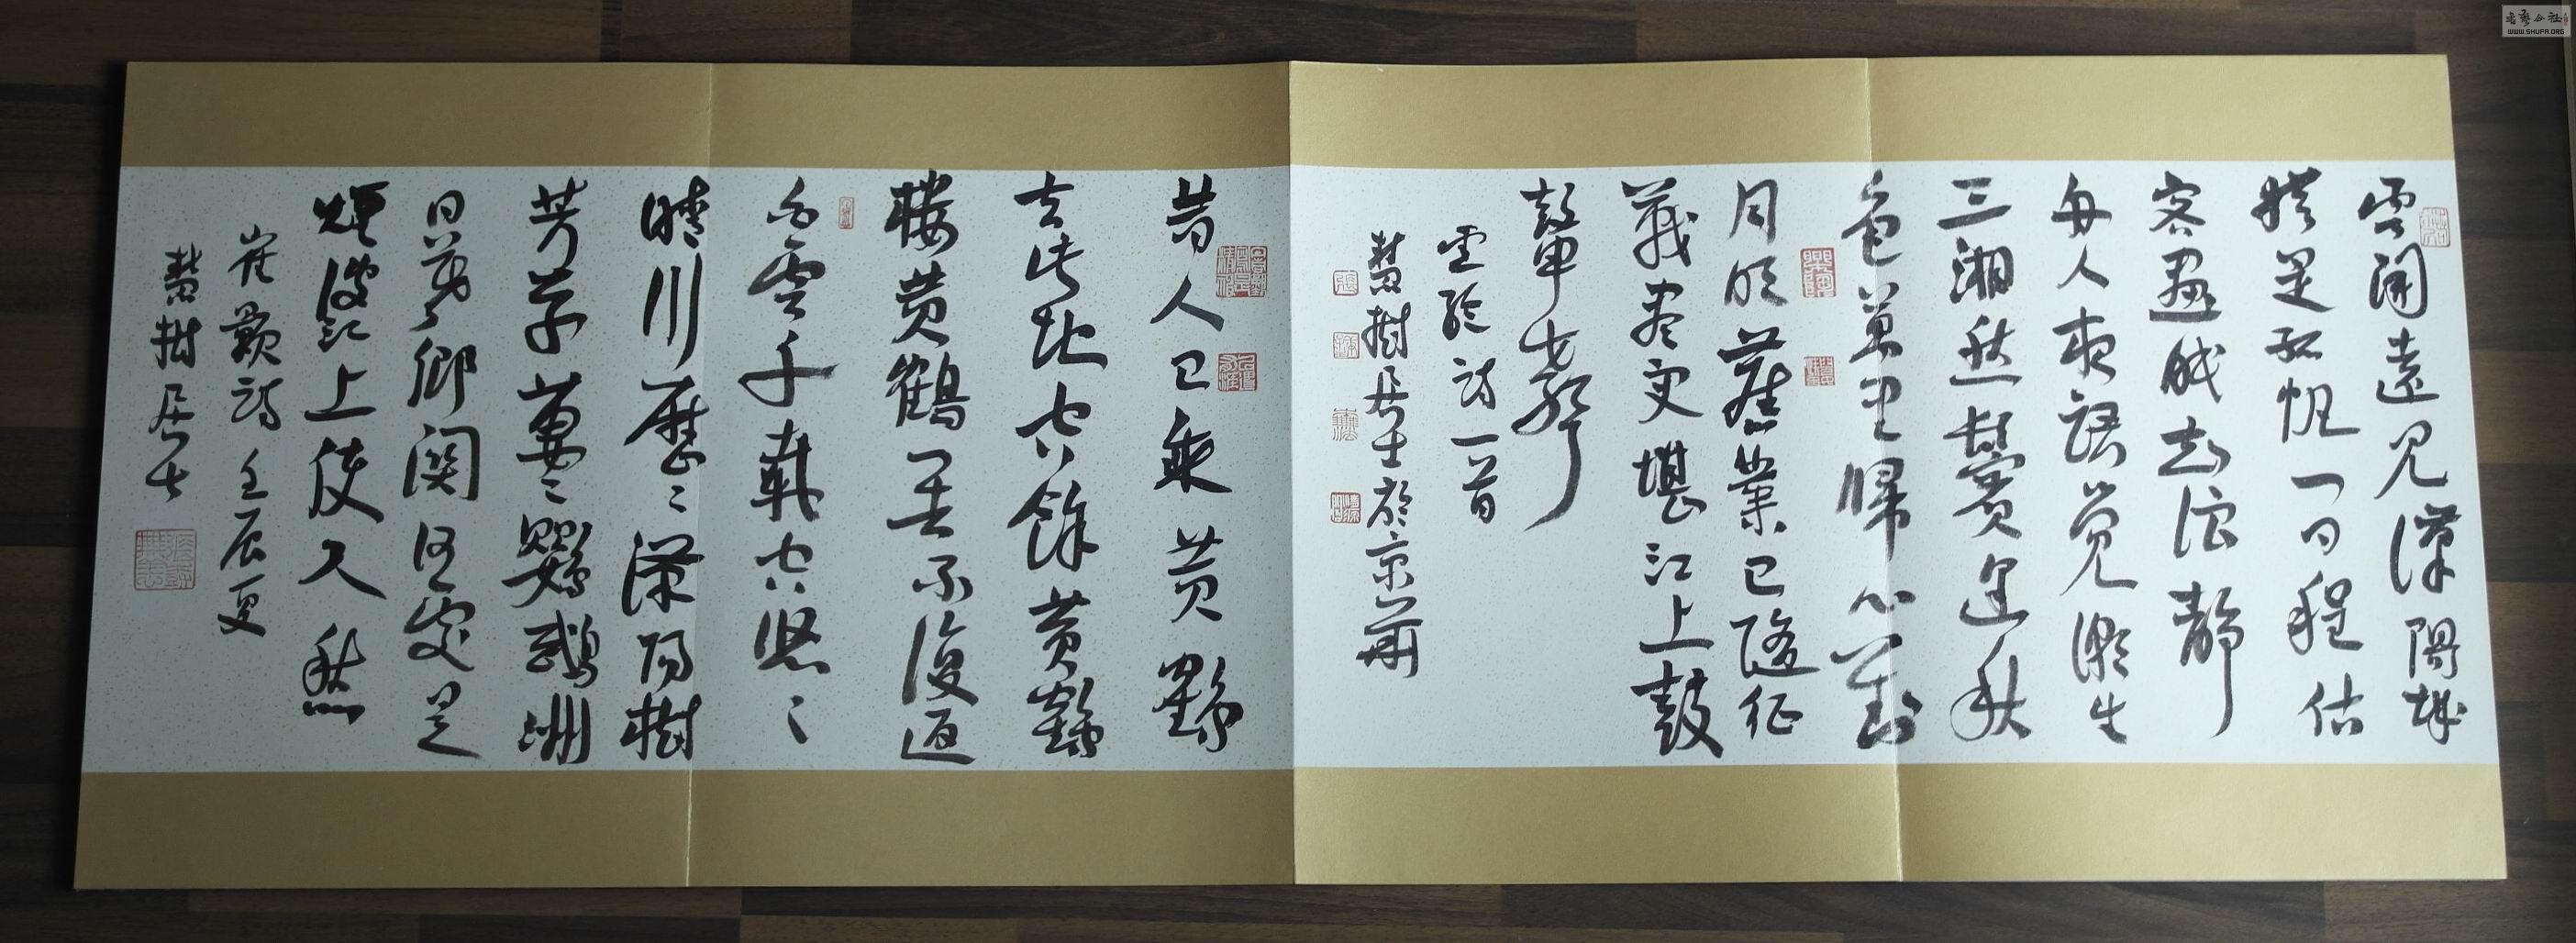 雲開遠見漢陽城
猶是孤帆一日程估
客晝眠知浪靜
舟人夜語覺潮生
三湘愁鬢逢秋
色萬里歸心對
月明舊業已随征
戰盡更堪江上鼓
鼙聲
盧綸詩一首
慧樹居士於京華
昔人已乘黄鶴
去此地空餘黄鶴
樓黄鶴一去不復返
白雲千載空悠〻
晴川歷〻漢陽樹
芳草萋〻鸚鵡洲
日暮鄉関何處是
煙波江上使人愁
崔顥詩壬辰夏
慧樹居士
WWW.SHUFA.ORG